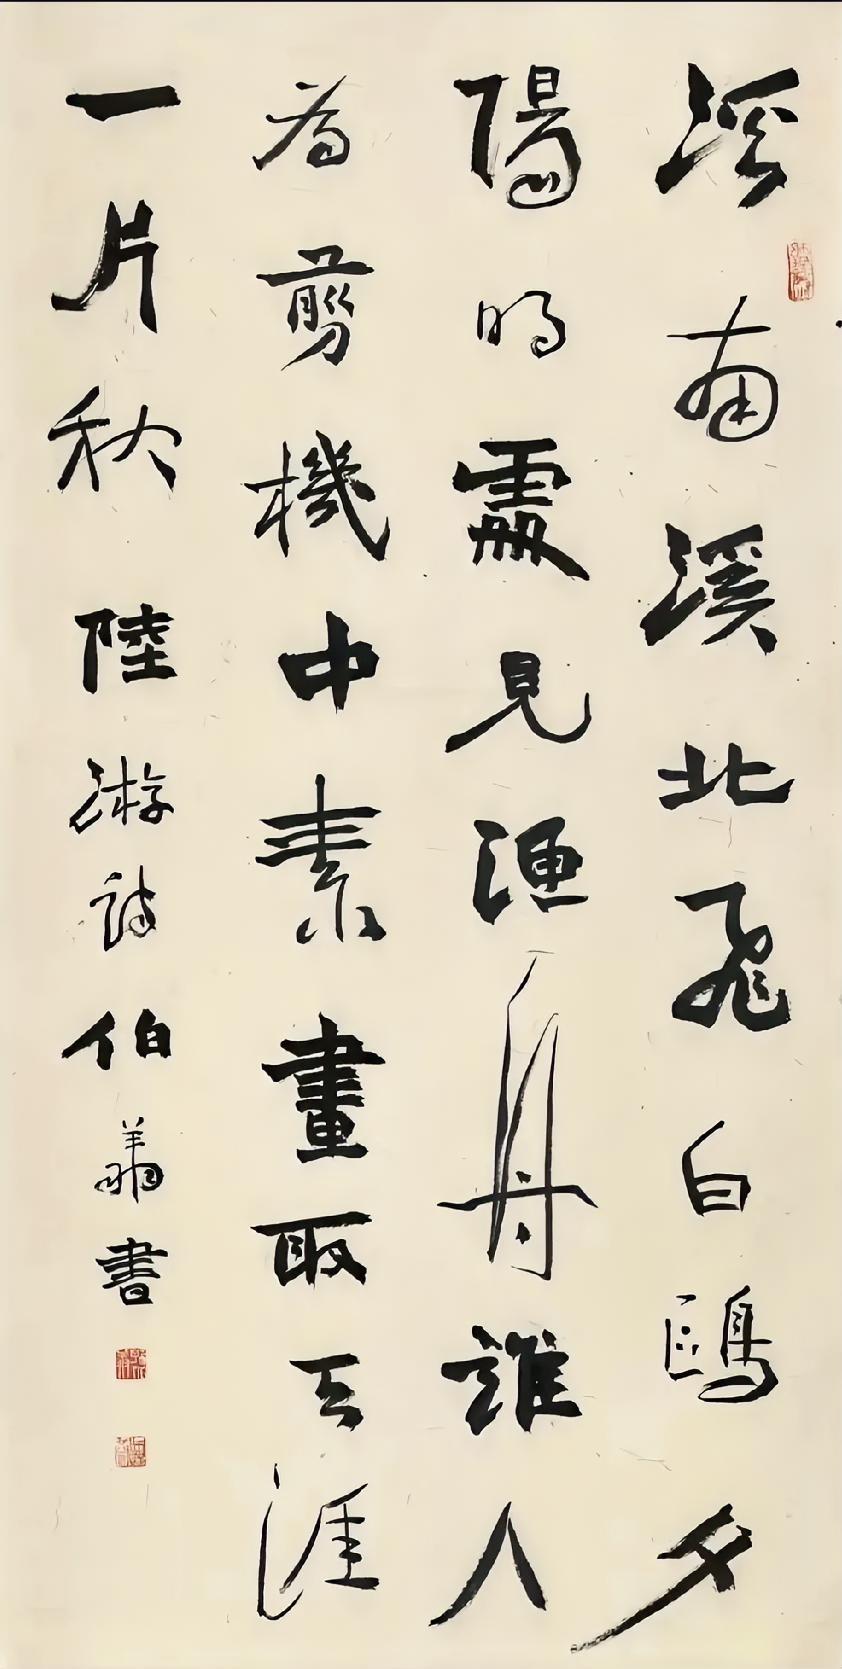 溪南溪北飛白鷗夕
陽明處見漁舟誰人
為剪機中素畫取天涯
一片秋 陸游詩 伯翁書